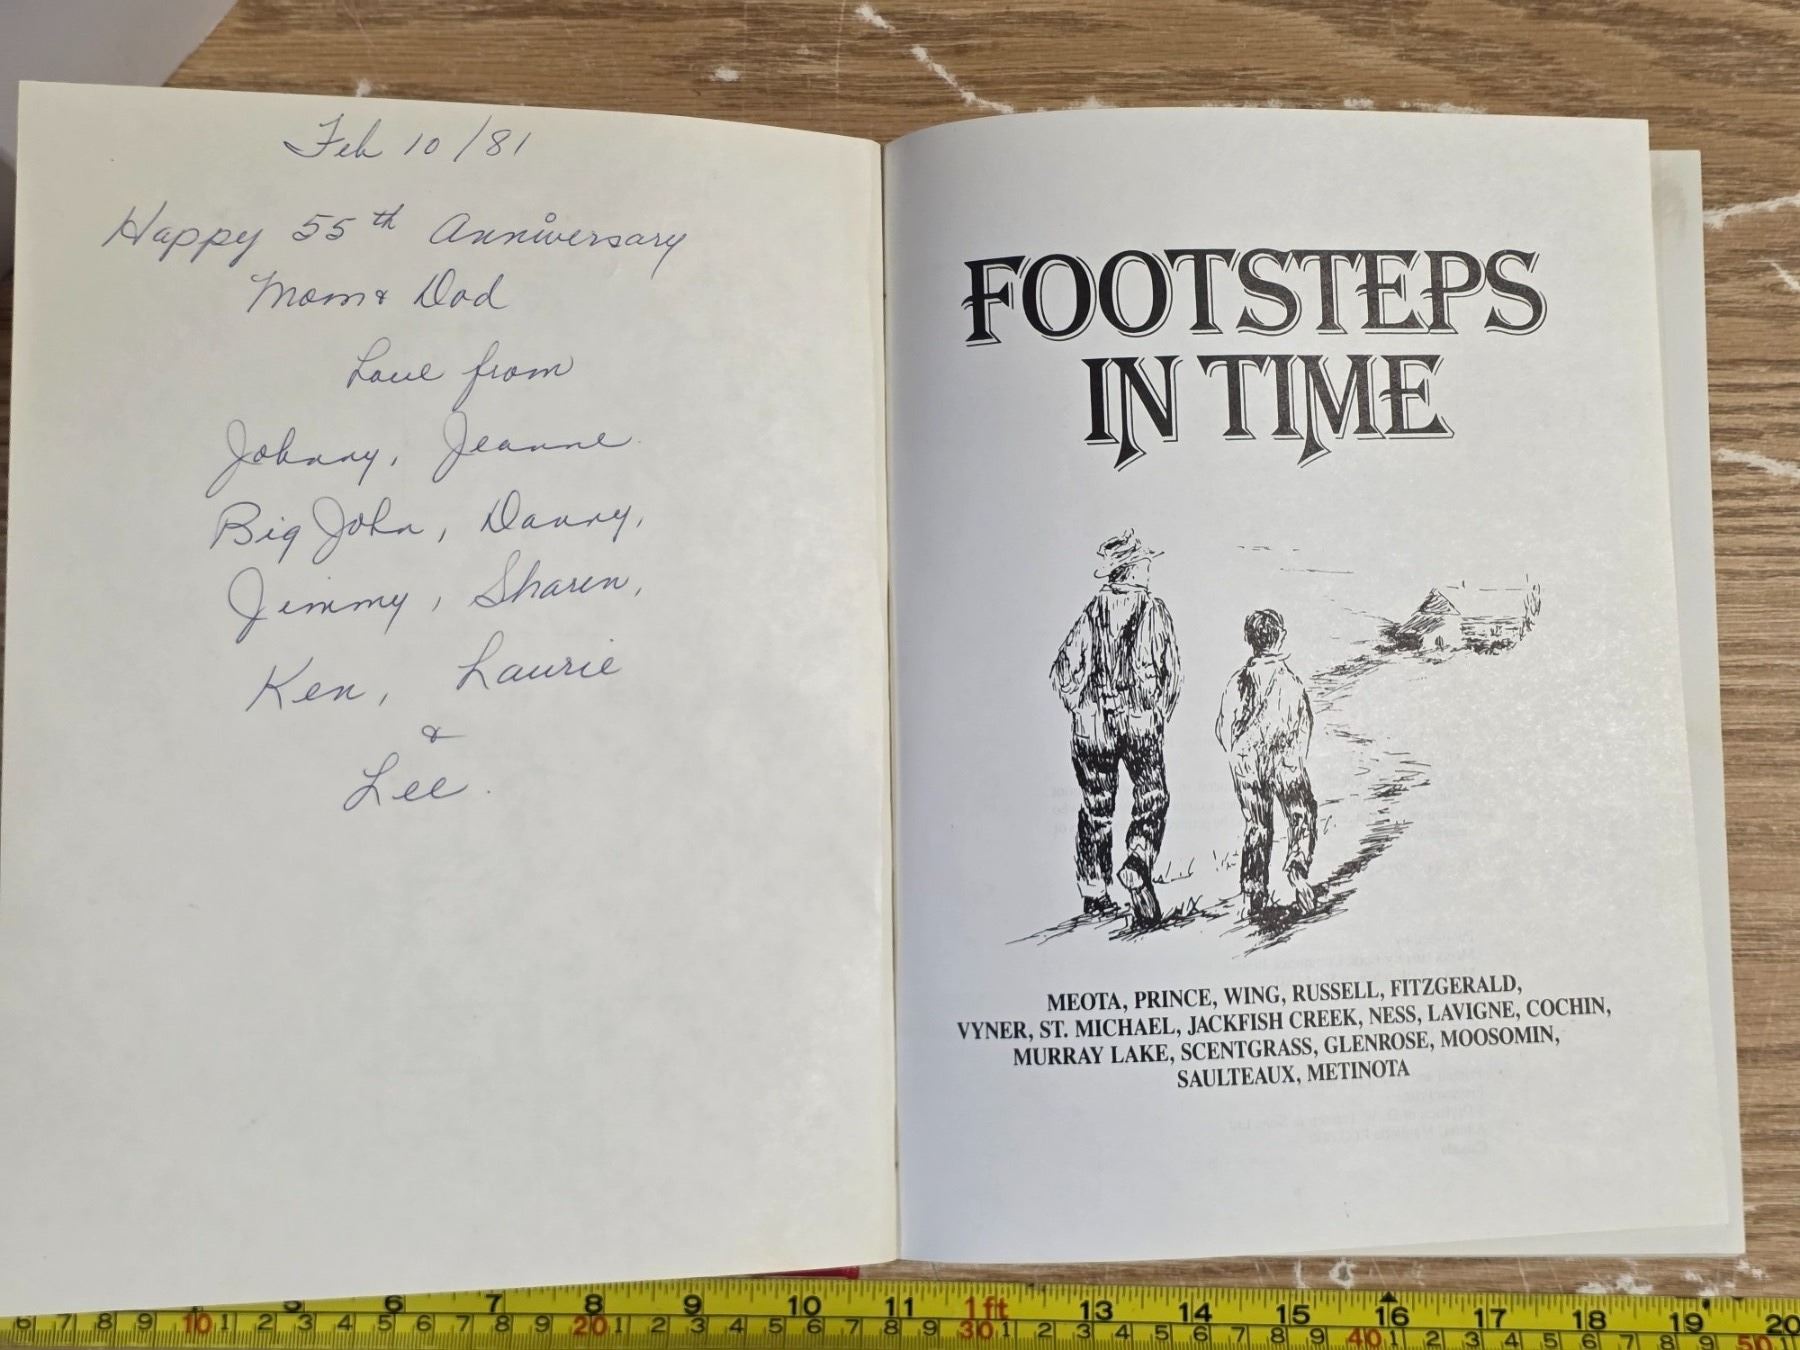 Feb 10/81
Happy 55th Anniversary
Mom & Dad
Love from
Johnny, Jeanne
Big John, Danny,
Jimmy, Sharen,
Ken, Laurie
&
Lee.
FOOTSTEPS
IN TIME
MEOTA, PRINCE, WING, RUSSELL, FITZGERALD,
VYNER, ST. MICHAEL, JACKFISH CREEK, NESS, LAVIGNE, COCHIN,
MURRAY LAKE, SCENTGRASS, GLENROSE, MOOSOMIN,
SAULTEAUX, METINOTA
6 7 8 9 10 11 1ft 13 14 15 16 17 18 19 20
6 7 8 9 10 1 2 3 4 5 6 7 8 9 20 1 2 3 4 5 6 7 8 9 30 1 2 3 4 5 6 7 8 9 40 1 2 3 4 5 6 7 8 9 50